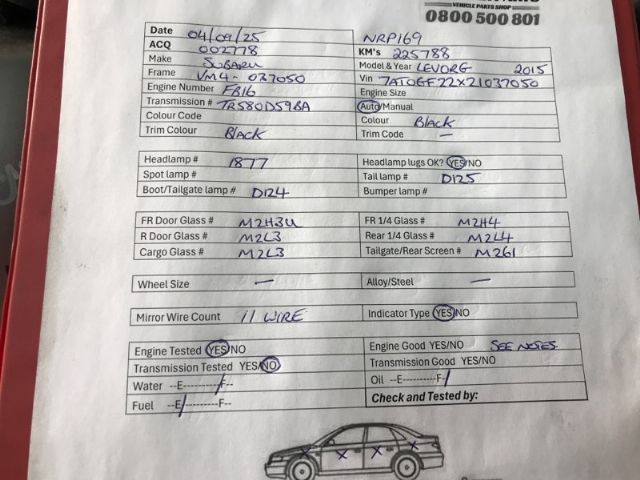 VEHICLE PARTS SHOP
0800 500 801
Date 04/09/25 NRP169
ACQ 002778 KM's 225788
Make SUBARU Model & Year LEVORG 2015
Frame VM4-037050 Vin 7AT0GF22X21037050
Engine Number FB16 Engine Size
Transmission # TR580DS9BA Auto/Manual
Colour Code Colour BLACK
Trim Colour BLACK Trim Code —
Headlamp # 1877 Headlamp lugs OK? YES/NO
Spot lamp # Tail lamp # D125
Boot/Tailgate lamp # D124 Bumper lamp #
FR Door Glass # M2H3U FR 1/4 Glass # M2H4
R Door Glass # M2L3 Rear 1/4 Glass # M2L4
Cargo Glass # M2L3 Tailgate/Rear Screen # M261
Wheel Size — Alloy/Steel —
Mirror Wire Count 11 WIRE Indicator Type YES/NO
Engine Tested YES/NO Engine Good YES/NO SEE NOTES
Transmission Tested YES/NO Transmission Good YES/NO
Water --E----------F-- Oil --E----------F-
Fuel --E----------F-- Check and Tested by:
x x x x